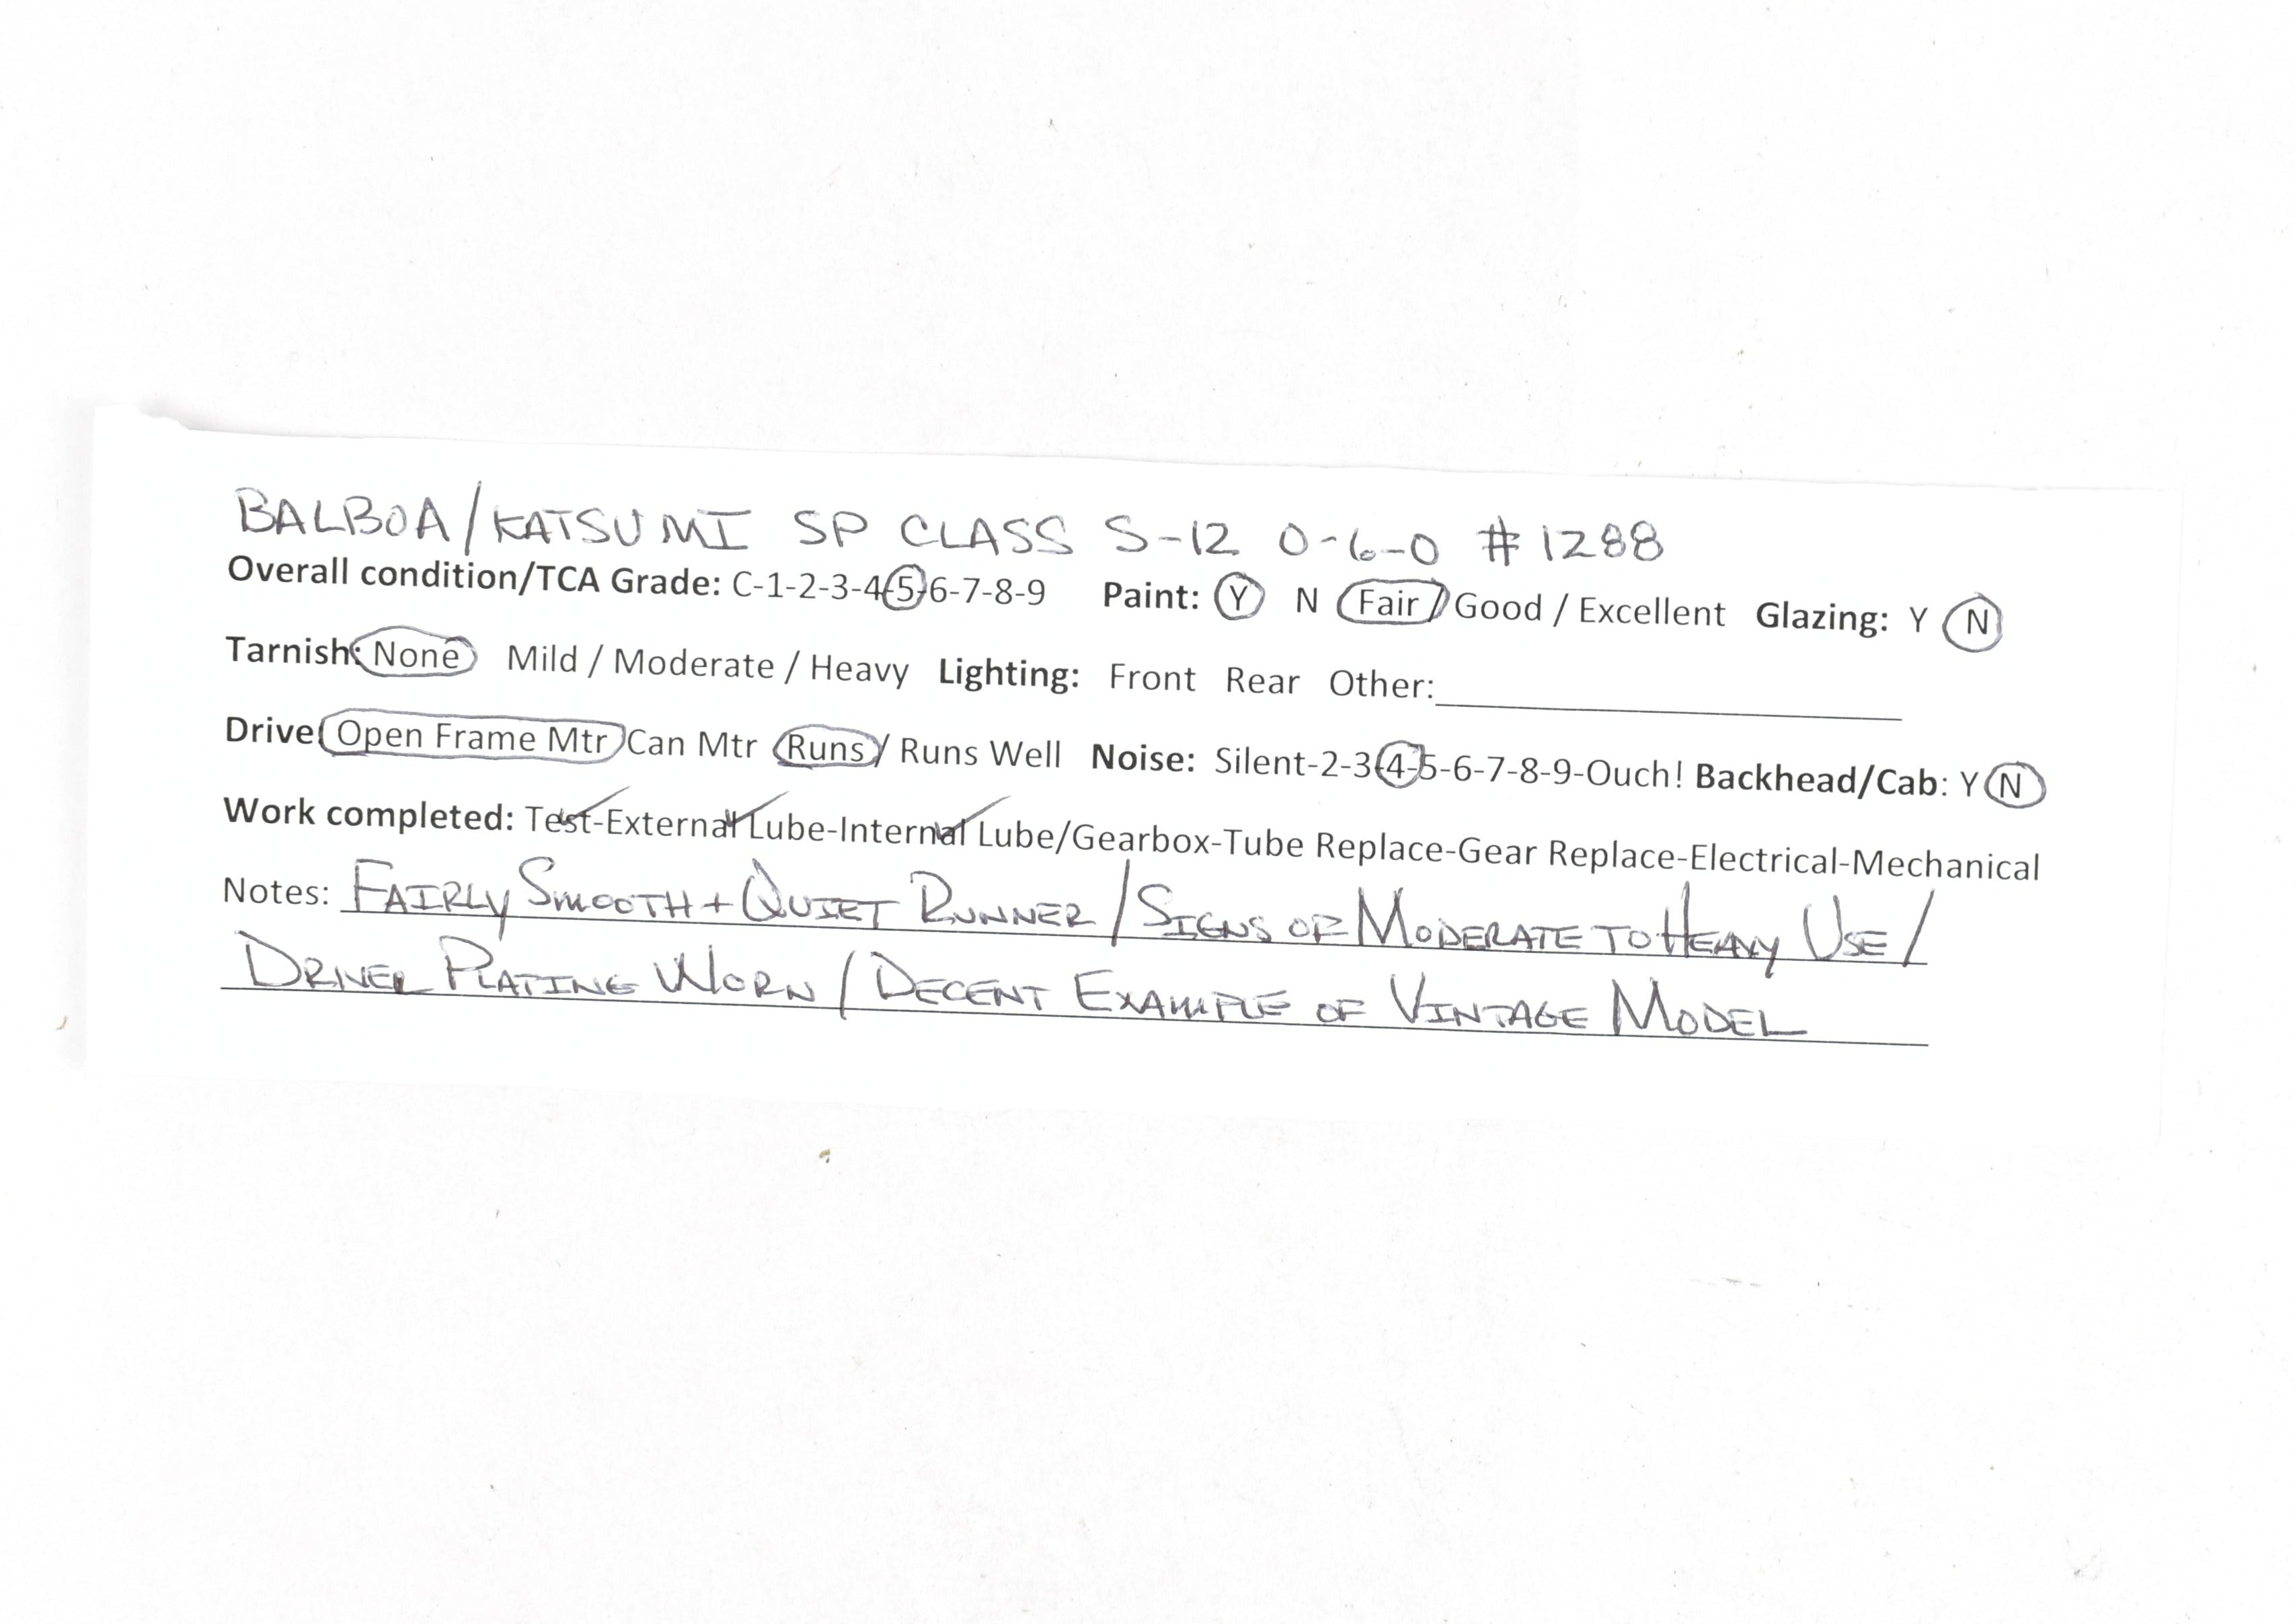 BALBOA/KATSUMI SP CLASS S-12 0-6-0 #1288
Overall condition/TCA Grade: C-1-2-3-4-5-6-7-8-9 Paint: Y N Fair / Good / Excellent Glazing: Y N
Tarnish: None Mild / Moderate / Heavy Lighting: Front Rear Other:
Drive: Open Frame Mtr Can Mtr Runs / Runs Well Noise: Silent-2-3-4-5-6-7-8-9-Ouch! Backhead/Cab: Y N
Work completed: Test-External Lube-Internal Lube/Gearbox-Tube Replace-Gear Replace-Electrical-Mechanical
Notes: FAIRLY SMOOTH + QUIET RUNNER / SIGNS OF MODERATE TO HEAVY USE /
DRIVER PLATING WORN / DECENT EXAMPLE OF VINTAGE MODEL